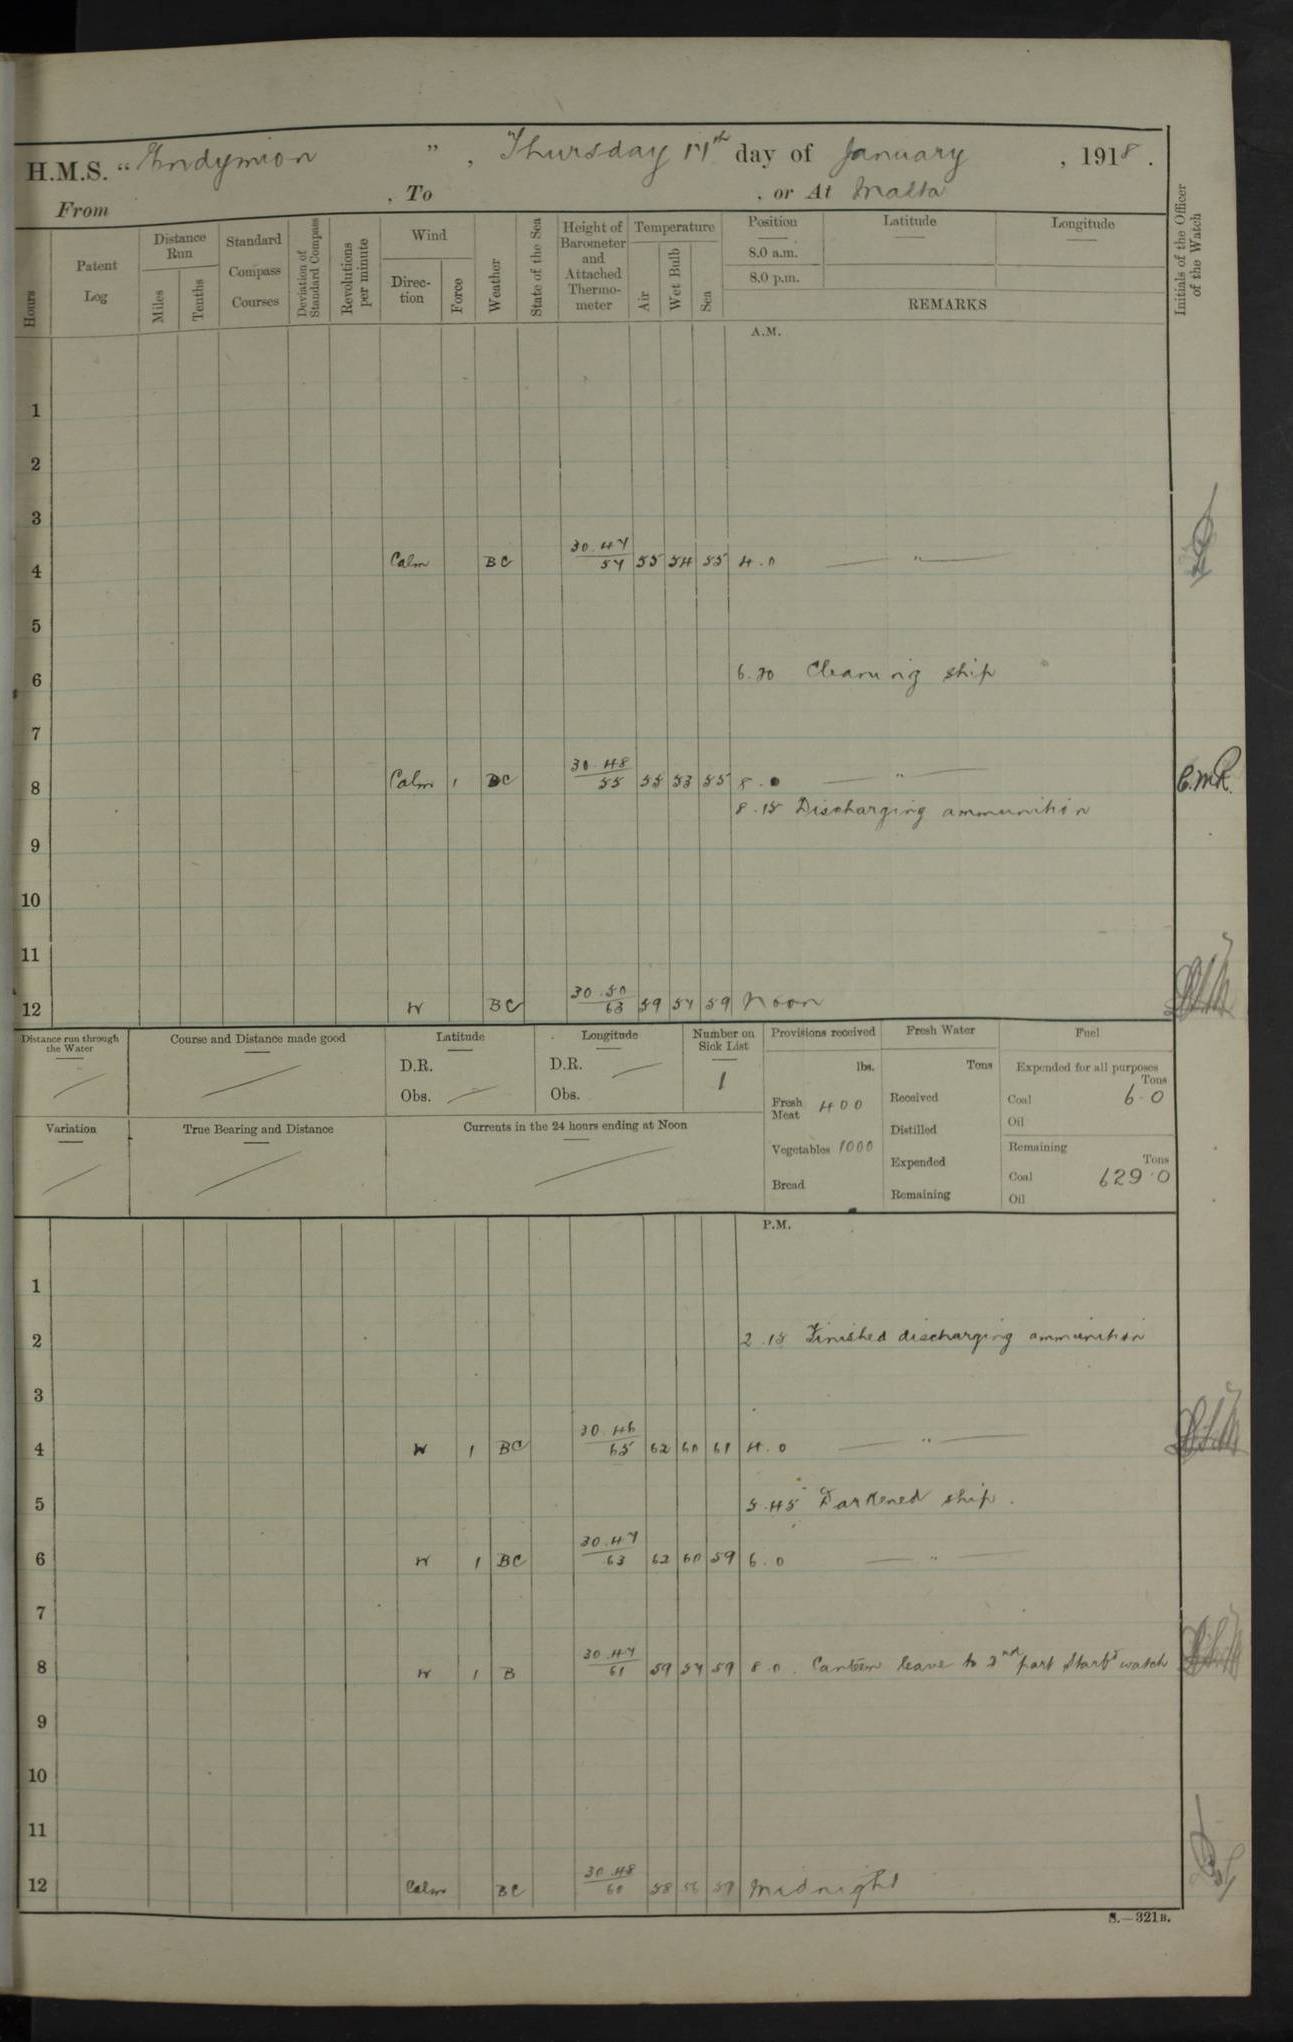 H.M.S. "Endymion", Thursday 17th day of January, 1918.
From , To , or At Malta
Hours
Patent Log
Distance Run
Miles
Tenths
Standard Compass Courses
Deviation of Standard Compass
Revolutions per minute
Wind
Direction
Force
Weather
State of the Sea
Height of Barometer and Attached Thermometer
Temperature
Air
Wet Bulb
Sea
Position
8.0 a.m.
8.0 p.m.
Latitude
Longitude
REMARKS
Initials of the Officer of the Watch
A.M.
1
2
3
4 Calm BC 30.47/57 55 54 55 4.0 — " —
5
6 6.30 Cleaning ship
7
8 Calm 1 BC 30.48/55 55 53 55 8.0 — " — C.M.R.
8.15 Discharging ammunition
9
10
11
12 W BC 30.50/63 59 57 59 Noon
Distance run through the Water
Course and Distance made good
Latitude
D.R.
Obs.
Longitude
D.R.
Obs.
Number on Sick List
1
Provisions received
lbs.
Fresh Meat 400
Vegetables 1000
Bread
Fresh Water
Tons
Received
Distilled
Expended
Remaining
Fuel
Expended for all purposes
Tons
Coal 6.0
Oil
Remaining
Tons
Coal 629.0
Oil
Variation
True Bearing and Distance
Currents in the 24 hours ending at Noon
P.M.
1
2 2.15 Finished discharging ammunition
3
4 W 1 BC 30.46/65 62 60 61 4.0 — " —
5 5.45 Darkened ship.
6 W 1 BC 30.47/63 62 60 59 6.0 — " —
7
8 W 1 B 30.47/61 59 57 59 8.0. Canteen leave to 2nd part Starbd watch
9
10
11
12 Calm BC 30.48/60 58 56 57 Midnight
S.—321B.